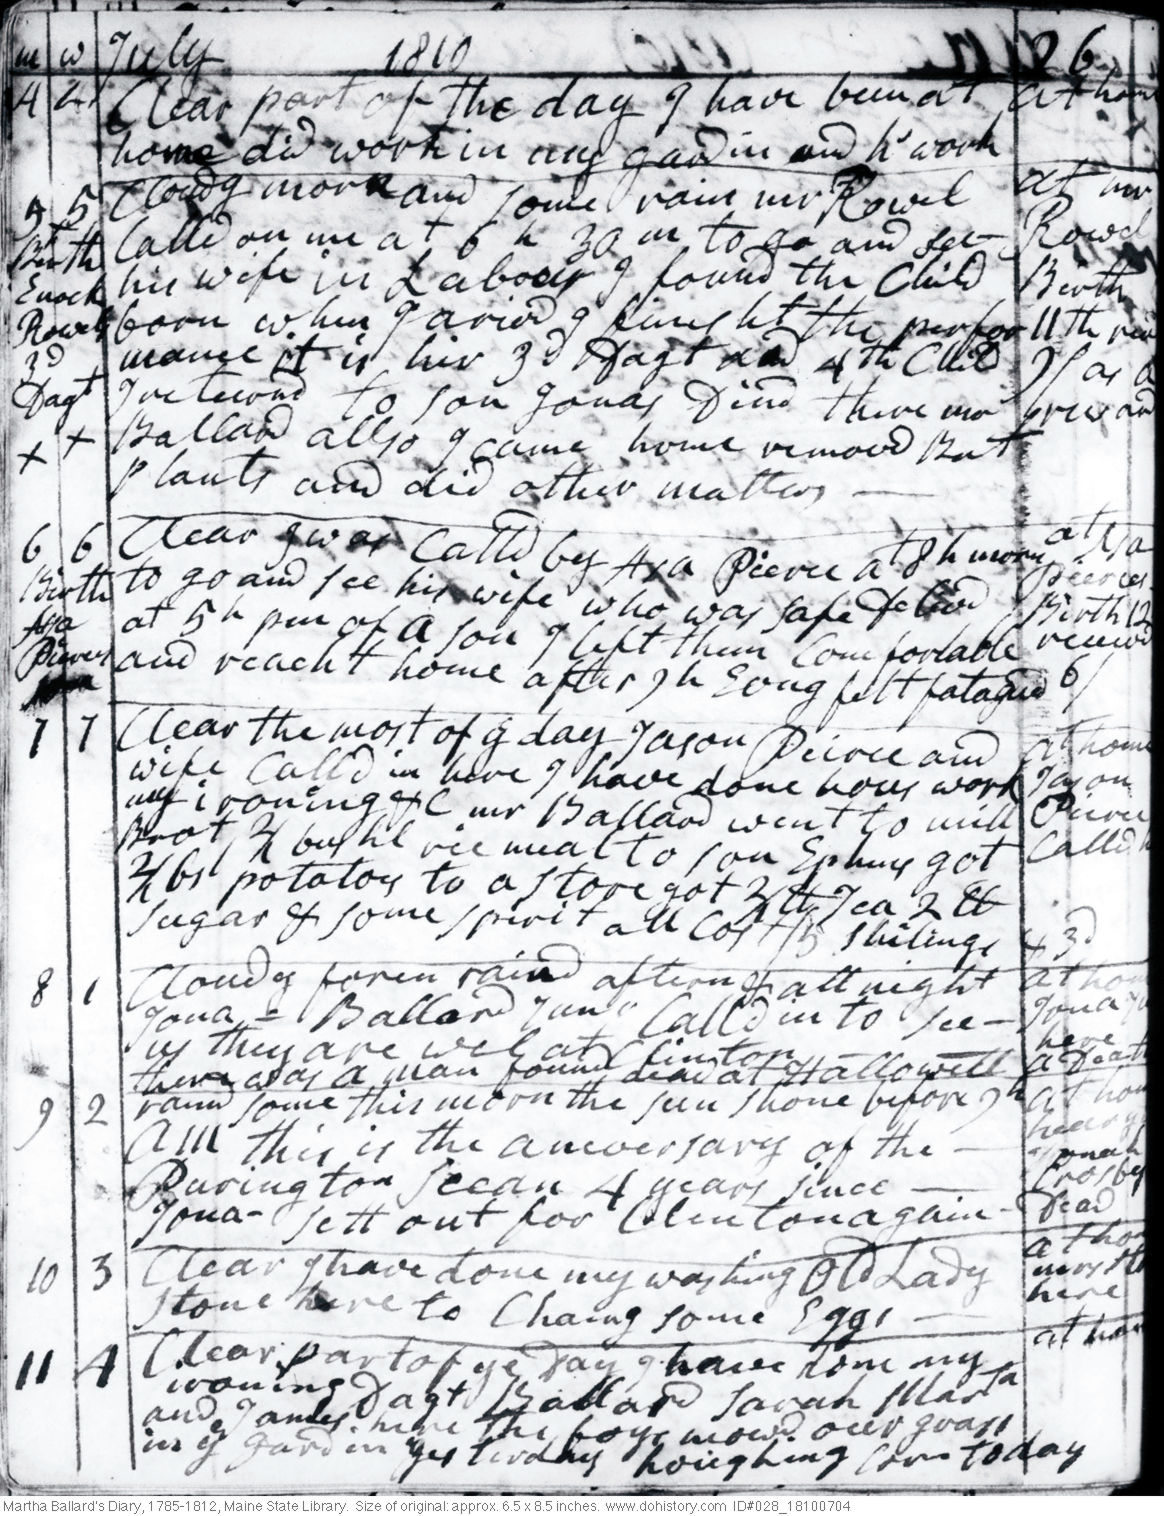 m w July 1810 26
4 2 Clear part of the day I have been at at home
home did work in my gardin and hs work
4 5 Cloudy morn and some rain mr Rowel at mr
Calld on me at 6 h 30 m to go and see Rowel
Birth his wife in Labour I found the Child Birth
Enock born when I arivd I finisht the perfor 11th
Rowels mance it is hir 3d Dagt and 4th Child
3d I returnd to son Jonas Dind there mr
Dagt Ballard allso I came home removd Beet
x x plants and did other matters —
6 6 Clear I was Calld by Asa Pierce at 8 h morn at Asa
Birth to go and see his wife who was safe delivd Pierces
Asa at 5 h pm of a son I left them Comfortable Birth 12
Pierces and reacht home after 9 h Evng felt fatagud receivd
son 6/
7 7 Clear the most of ye day Jason Peirce and at home
wife Calld in here I have done hous work Jason
my ironing &C mr Ballard went to mill Peirce
Brot 1/2 bushl rie meal to son Ephms got Calld
2/4 bs potatoes to a store got 1/4 lb Tea 2 lb
sugar & some spirit all Cost 15 shilings 4 3d
8 1 Cloudy foren raind aftern & all night at home
Jona - Ballard Junr Calld in to see — Jona
us they are well at Clinton here
there was a man found dead at Hallowell a Death
9 2 raind some this morn the sun shone before 9 h at home
AM this is the aneversary of the — hear
Purington Scean 4 years since — Jonah Crosby
Jona- sett out for Clintonagain - Dead
10 3 Clear I have done my washing Old Lady at home
Stone here to Chang some Eggs — mrs
here
11 4 Clear part of ye Day I have done my at home
ironing Dagt Ballard Sarah Marta
and James here the boys mowd our grass
in ye gardin yesterday houghing Corn today
Martha Ballard's Diary, 1785-1812, Maine State Library. Size of original: approx. 6.5 x 8.5 inches. www.dohistory.com ID#028_18100704